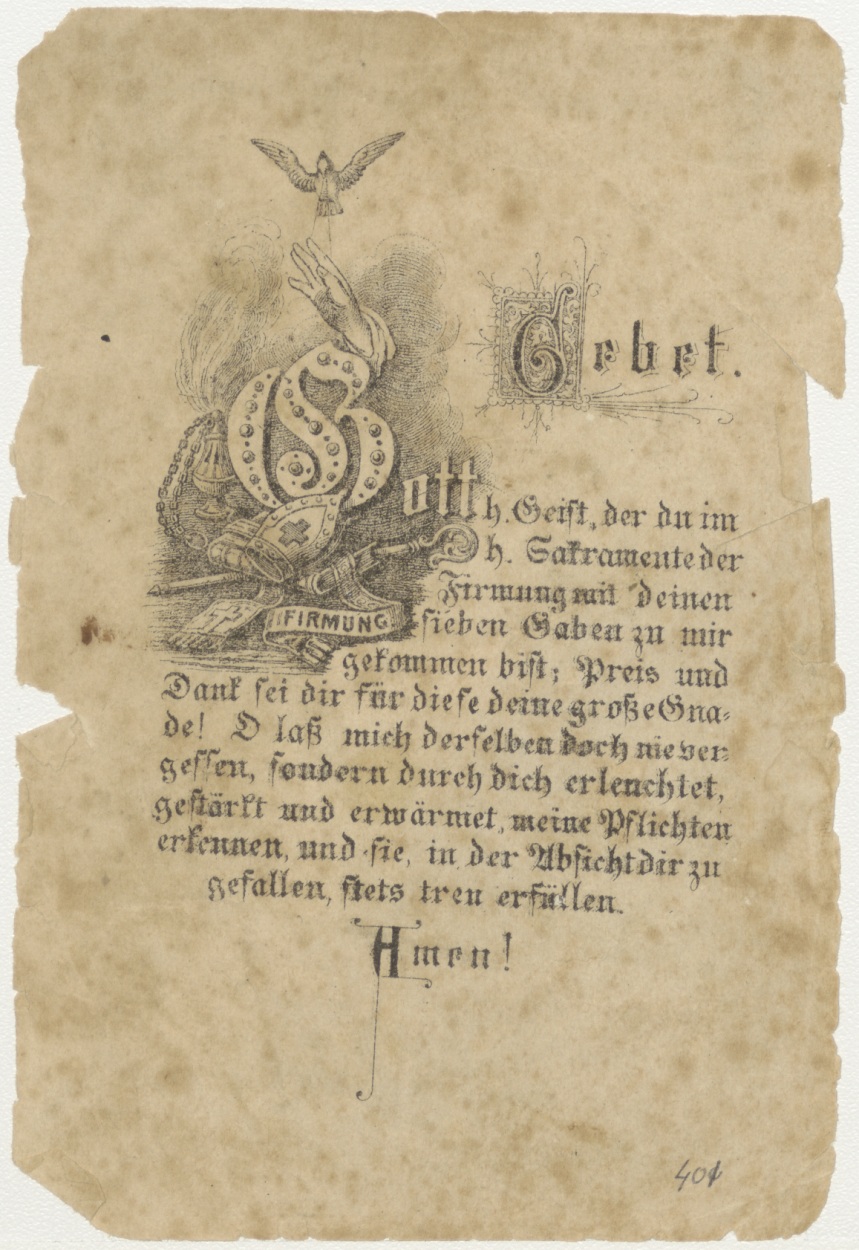 Gebet.
Gott h. Geist, der du im
h. Sakramente der
Firmung mit deinen
FIRMUNG
sieben Gaben zu mir
gekommen bist; Preis und
Dank sei dir für diese deine große Gna-
de! O laß mich derselben doch nie ver-
gessen, sondern durch dich erleuchtet,
gestärkt und erwärmet, meine Pflichten
erkennen, und sie, in der Absicht dir zu
gefallen, stets treu erfüllen.
Amen!